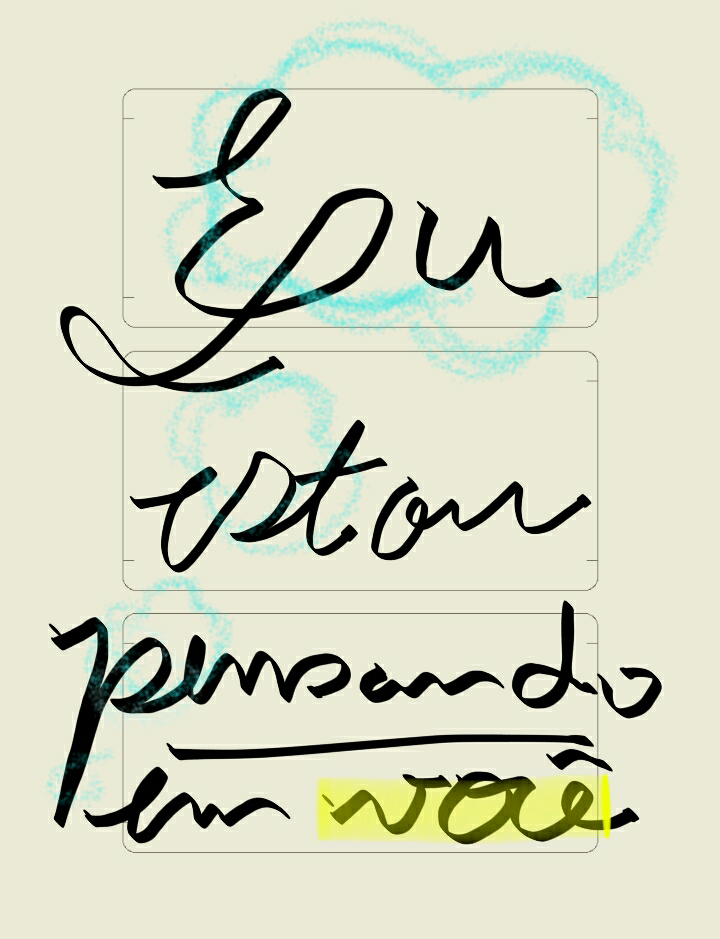 Eu
estou
pensando
em você